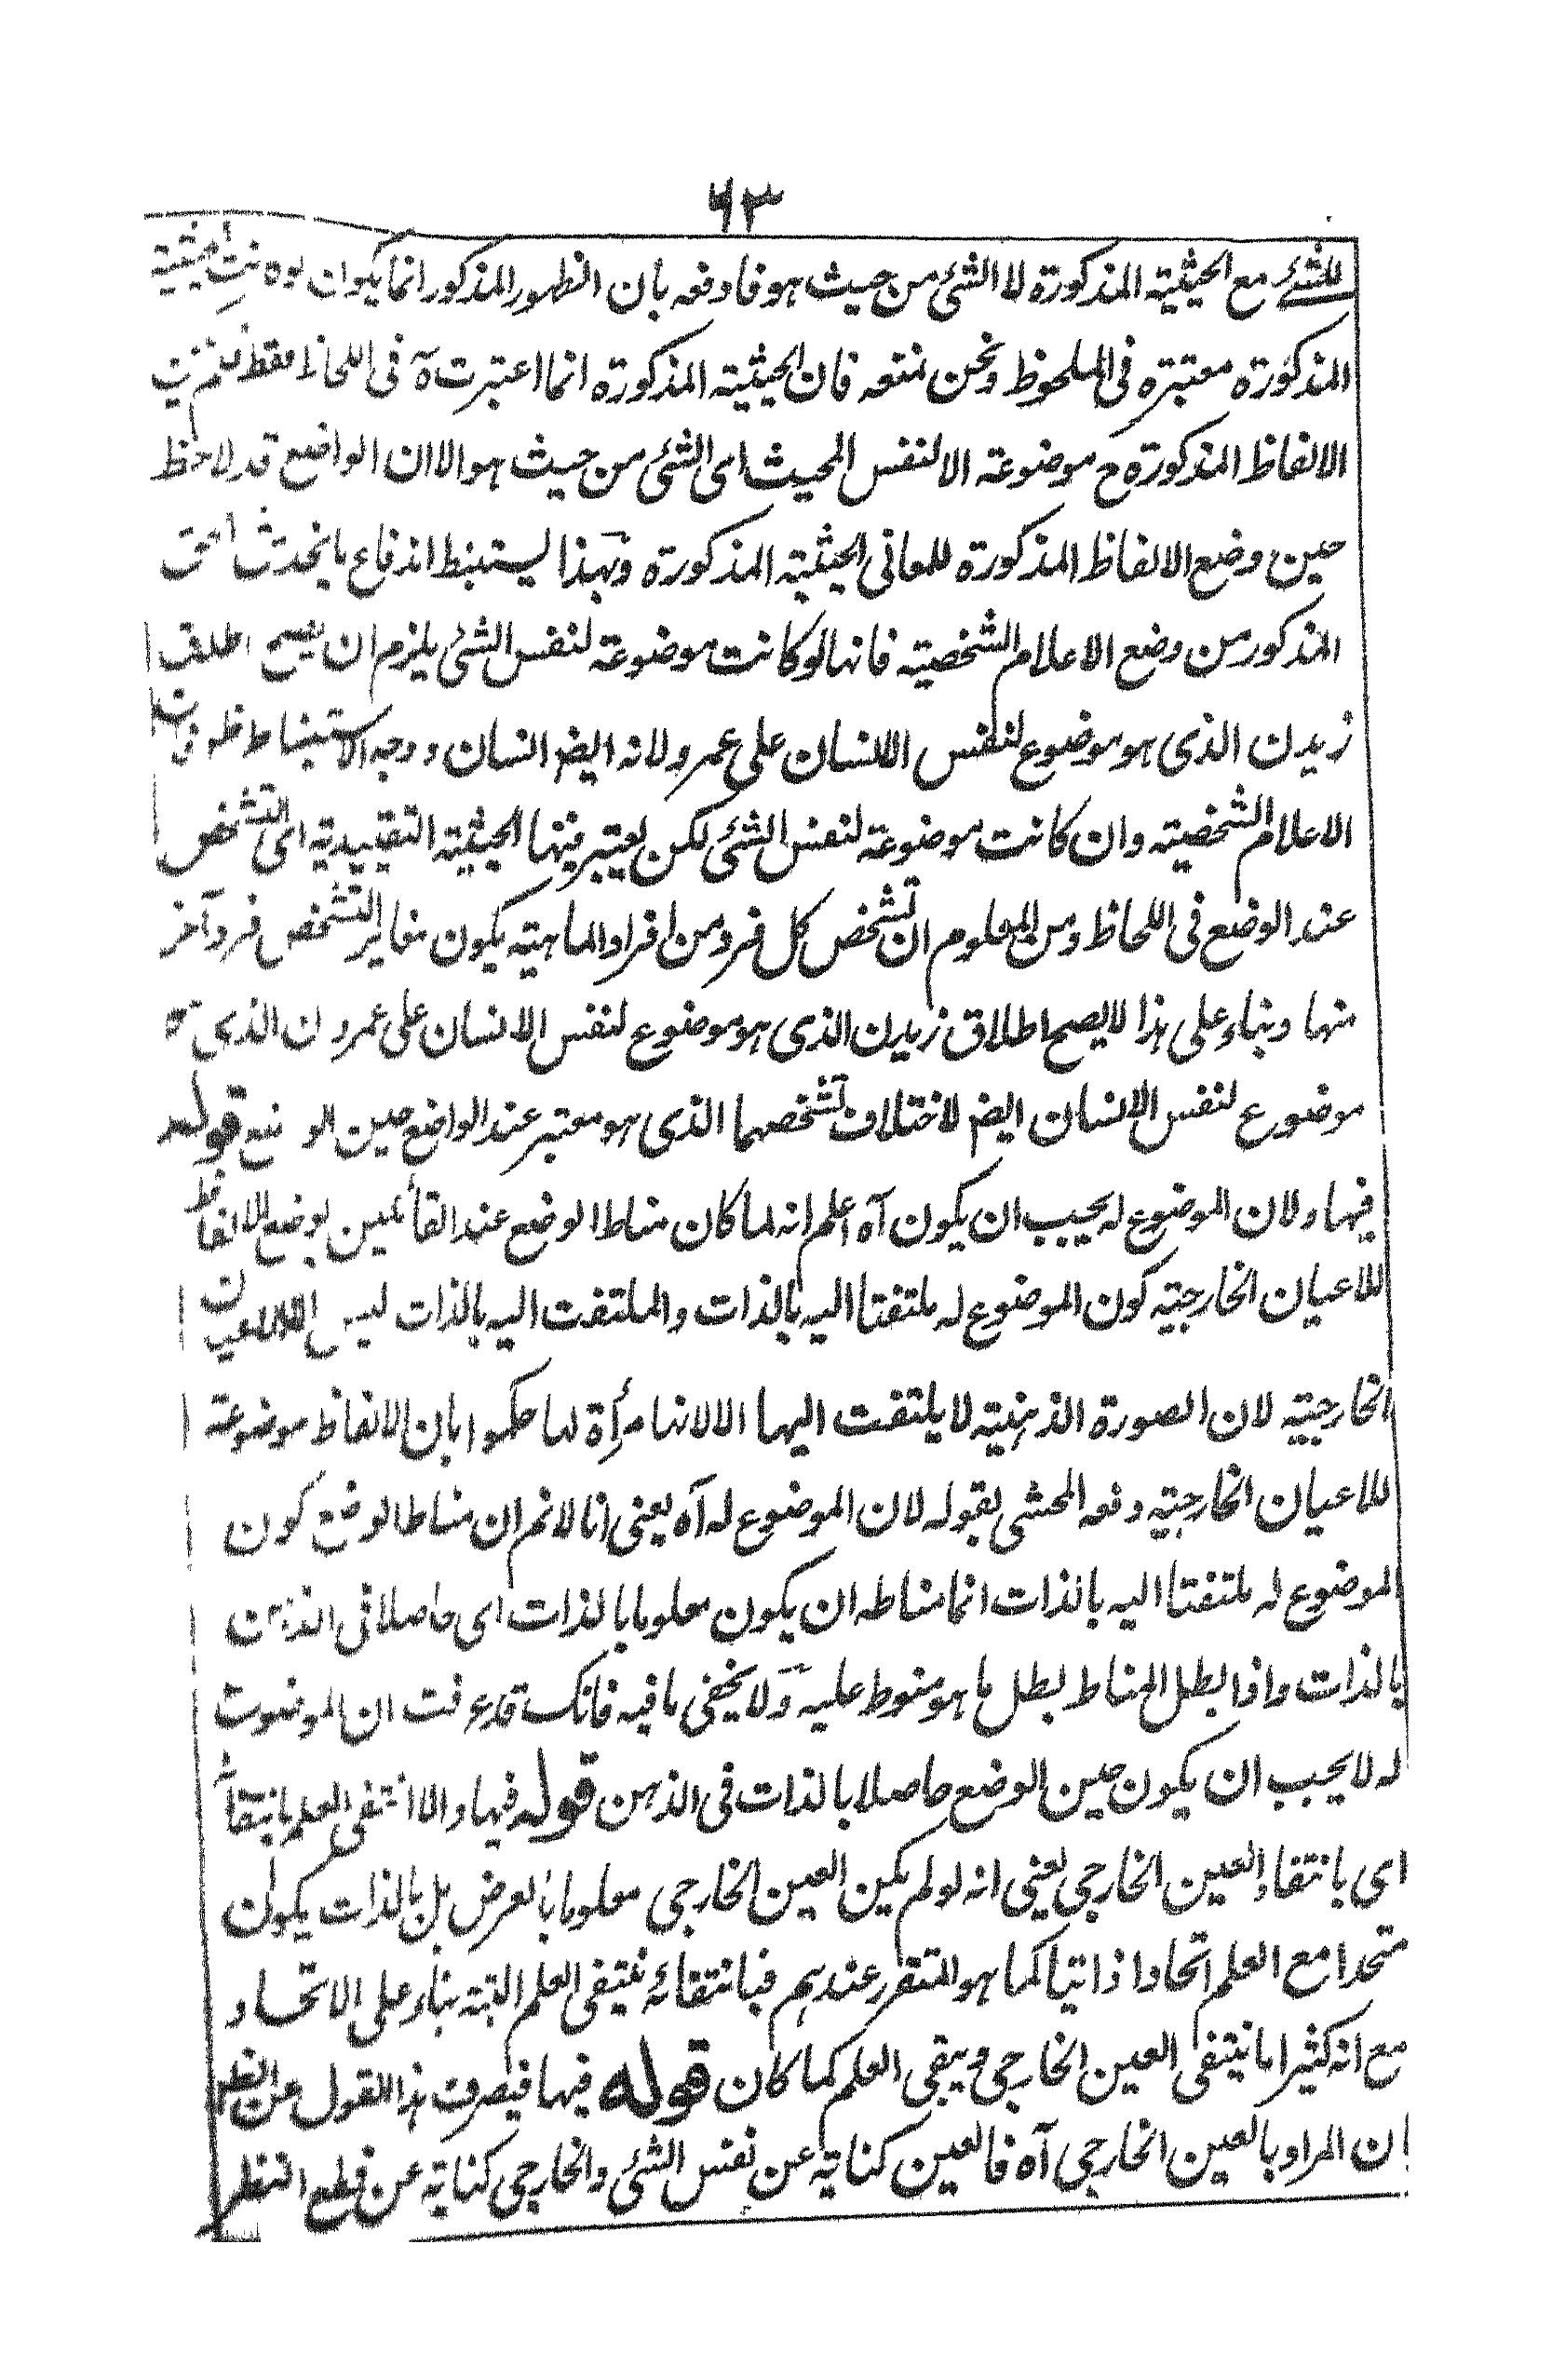 ٦٣
للشئ مع الحيثية المذكورة لا الشئ من حيث هو فادفعه بأن الظهور المذكور انما يكون لو كانت الحيثية
المذكورة معتبرة فى الملحوظ ونحن نمنعه فان الحيثية المذكورة انما اعتبرت آه فى اللحاظ فقط فلم
الالفاظ المذكورة ح موضوعة الا لنفس المحيث اى الشئ من حيث هو الا ان الواضع قد لاحظ
حين وضع الالفاظ المذكورة للمعانى الحيثية المذكورة وبهذا يستنبط اندفاع ما يخدش الحق
المذكور من وضع الاعلام الشخصية فانها لو كانت موضوعة لنفس الشئ يلزم ان يصح اطلاق
زيد ن الذى هو موضوع لنفس الانسان على عمرو لانه ايضا انسان ووجه الاستنباط ظ فان
الاعلام الشخصية وان كانت موضوعة لنفس الشئ لكن يعتبر فيها الحيثية التقييدية اى التشخص
عند الوضع فى اللحاظ ومن المعلوم ان تشخص كل فرد من افراد الماهية يكون مغاير التشخص فرد آخر
منها وبناء على هذا لا يصح اطلاق زيد ن الذى هو موضوع لنفس الانسان على عمرو ن الذى هو
موضوع لنفس الانسان ايضا لاختلاف تشخصهما الذى هو معتبر عند الواضع حين الوضع قوله
فيها ولان الموضوع له يجب ان يكون آه اعلم انه لما كان مناط الوضع عند القائلين بوضع الالفاظ
للاعيان الخارجية كون الموضوع له ملتفتا اليه بالذات والملتفت اليه بالذات ليس الا الاعيان
الخارجية لان الصورة الذهنية لا يلتفت اليها الا لانها مرأة لها حكموا بان الالفاظ موضوعة
للاعيان الخارجية دفعه المحشى بقوله لان الموضوع له آه يعنى انا لا نم ان مناط الوضع كون
الموضوع له ملتفتا اليه بالذات انما مناطه ان يكون معلوما بالذات اى حاصلا فى الذهن
بالذات واذا بطل المناط بطل ما هو منوط عليه ولا يخفى ما فيه فانك قد عرفت ان الموضوع
له لا يجب ان يكون حين الوضع حاصلا بالذات فى الذهن قوله فيها والا انتفى العلم بانتفائه
اى بانتفاء العين الخارجى يعنى انه لو لم يكن العين الخارجى معلوما بالعرض بل بالذات يكون
متحدا مع العلم اتحادا ذاتيا كما هو المتقرر عندهم فبانتفائه ينتفى العلم البتة بناء على الاتحاد
مع انه كثيرا ما ينتفى العين الخارجى ويبقى العلم كما كان قوله فيها فيصرف هذا القول عن الظاهر
ان المراد بالعين الخارجى آه فالعين كناية عن نفس الشئ والخارجى كناية عن قطع النظر